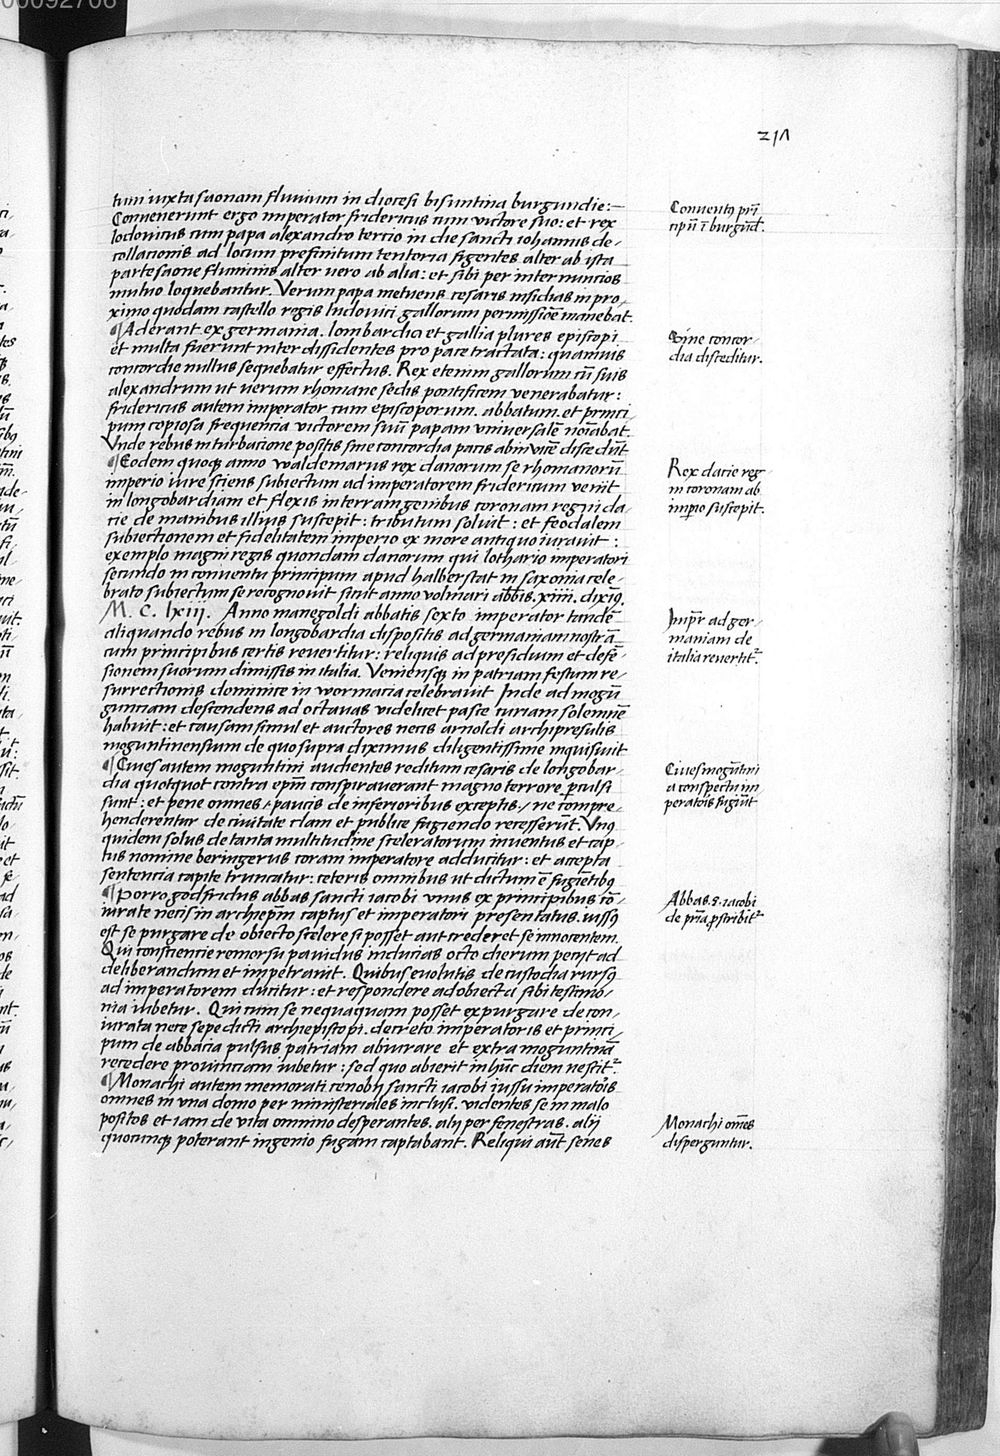 00092706
217
tum iuxta saonam fluuium in diocesi bisuntina burgundie:—
Conuenerunt ergo imperator fridericus cum victore suo: et rex
lodouicus cum papa alexandro tercio in die sancti iohannis de-
collacionis ad locum prefinitum tentoria figentes alter ab ista
parte saone fluminis alter uero ab alia: et sibi per internuncios
mutuo loquebantur. Verum papa metuens cesaris insidias in pro-
ximo quodam castello regis ludouici gallorum permissiōe manebat.
¶Aderant ex germania. lombardia et gallia plures episcopi
et multa fuerunt inter dissidentes pro pace tractata: quamuis
concordie nullus sequebatur effectus. Rex etenim gallorum cū suis
alexandrum ut uerum rhomane sedis pontificem venerabatur:
fridericus autem imperator cum episcoporum. abbatum. et princi-
pum copiosa frequencia victorem suū papam vniuersalē noīabat.
Vnde rebus in turbacione positis sine concordia pacis abinuicē discedūt.
¶Eodem quoqꝫ anno waldemarus rex danorum se rhomanorū
imperio iure sciens subiectum ad imperatorem fridericum venit
in longobardiam et flexis in terram genibus coronam regni da-
cie de manibus illius suscepit: tributum soluit: et feodalem
subiectionem et fidelitatem imperio ex more antiquo iurauit:
exemplo magni regis quondam danorum qui lothario imperatori
secundo in conuentu principum apud halberstat in saxonia cele-
brato subiectum se recognouit sicut anno volmari abb̄is. xiiii. dixiꝰ.
M. C. lxiii. Anno manegoldi abbatis sexto imperator tandē
aliquando rebus in longobardia dispositis ad germaniam nostrā
cum principibus certis reuertitur: reliquis ad presidium et defē-
sionem suorum dimissis in italia. Veniensqꝫ in patriam festum re-
surrectionis dominice in wormacia celebrauit Inde ad mogū-
gunciam descendens ad octauas videlicet pasce curiam solemnē
habuit: et causam simul et auctores necis arnoldi archipresulis
moguntinensium de quo supra diximus diligentissime inquisiuit
¶Ciues autem moguntini audientes reditum cesaris de longobar-
dia quotquot contra ep̄m conspirauerant magno terrore ꝑculsi
sunt: et pene omnes / paucis de inferioribus exceptis / ne compre-
henderentur de ciuitate clam et publice fugiendo recesserūt. Vnꝰ
quidem solus de tanta multitudine sceleratorum inuentus et cap-
tus nomine beringerus coram imperatore adducitur: et accepta
sentencia capite truncatur: ceteris omnibus ut dictum ē fugiētibꝰ
¶Porro godfridus abbas sancti iacobi vnus ex principibus cō-
iurate necis in archiepm̄ captus et imperatori presentatus. iussꝰ
est se purgare de obiecto scelere si posset aut crederet se innocentem.
Qui consciencie remorsu pauidus inducias octo dierum peciit ad
deliberandum et impetrauit. Quibus euolutis de custodia rursꝰ
ad imperatorem ducitur: et respondere ad obiecta sibi testimo-
nia iubetur. Qui cum se nequaquam posset expurgare de con-
iurata nece sepedicti archiepiscopi. decreto imperatoris et princi-
pum de abbacia pulsus patriam abiurare et extra moguntinā
recedere prouinciam iubetur: sed quo abierit in hūc diem nescit᷑.
¶Monachi autem memorati cenobij sancti iacobi iussu imperatoris
omnes in vna domo per ministeriales inclusi. videntes se in malo
positos et iam de vita omnino desperantes. alij per fenestras. alij
quocunqꝫ poterant ingenio fugam captabant. Reliqui aūt senes
Conuentꝰ prī-
cipū ī burgūd.
Sine concor-
dia disceditur.
Rex dacie reg-
ni coronam ab
imꝑio suscepit.
Imꝑr ad ger-
maniam de
italia reuertit᷑.
Ciues mogūtini
a conspectu im-
peratoris fugiūt
Abbas. s. iacobi
de pr̄ia ꝓscribit᷑
Monachi om̄es
disperguntur.